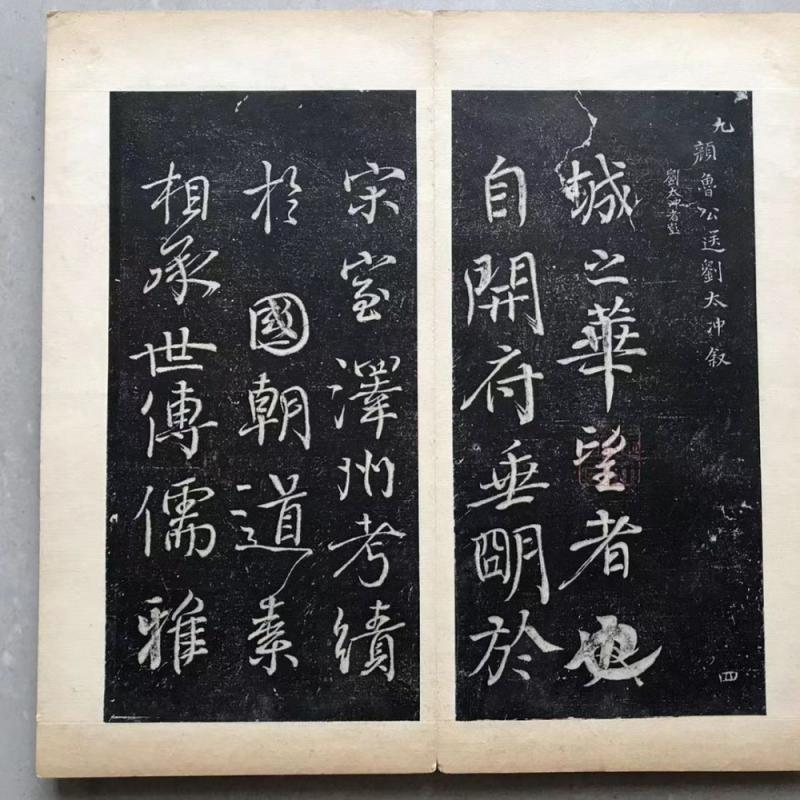 九 顏魯公送劉太沖叙
劉太沖者彭
城之華望者也
自開府垂明於
宋室澤州考績
於國朝道素
相承世傳儒雅
四